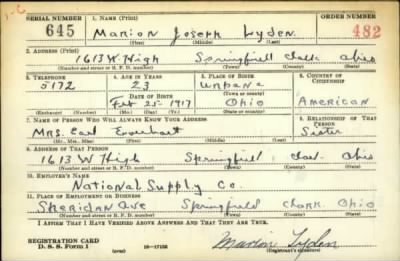 SERIAL NUMBER 1. NAME (Print) ORDER NUMBER
645 Marion Joseph Lyden 482
(First) (Middle) (Last)
2. ADDRESS (Print)
1613 W. High Springfield Clark Ohio
(Number and street or R. F. D. number) (Town) (County) (State)
3. TELEPHONE 4. AGE IN YEARS 5. PLACE OF BIRTH 6. COUNTRY OF CITIZENSHIP
5172 23 Urbana
DATE OF BIRTH (Town or county)
Feb 25 - 1917 Ohio American
(Exchange) (Number) (Mo.) (Day) (Yr.) (State or country)
7. NAME OF PERSON WHO WILL ALWAYS KNOW YOUR ADDRESS 8. RELATIONSHIP OF THAT PERSON
Mrs. Earl Everhart Sister
(Mr., Mrs., Miss) (First) (Middle) (Last)
9. ADDRESS OF THAT PERSON
1613 W High Springfield Clark Ohio
(Number and street or R. F. D. number) (Town) (County) (State)
10. EMPLOYER'S NAME
National Supply Co.
11. PLACE OF EMPLOYMENT OR BUSINESS
Sheridan Ave Springfield Clark Ohio
(Number and street or R. F. D. number) (Town) (County) (State)
I AFFIRM THAT I HAVE VERIFIED ABOVE ANSWERS AND THAT THEY ARE TRUE.
REGISTRATION CARD
D. S. S. Form 1 (over) 16—17105 Marion Lyden
(Registrant's signature)